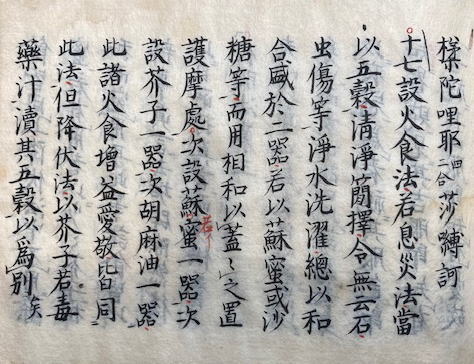 㮚陀哩耶四合二合莎嚩訶
十七設火食法若息災法當
以五穀清淨簡擇令無云石
虫傷等淨水洗濯總以和
合盛於二器若以蘇蜜或沙
糖等而用相和以蓋々之置
護摩處次設蘇蜜一器次
若
設芥子一器次胡麻油一器
此諸火食增益愛敬皆同
此法但降伏法以芥子若毒
藥汁瀆其五穀以為別矣